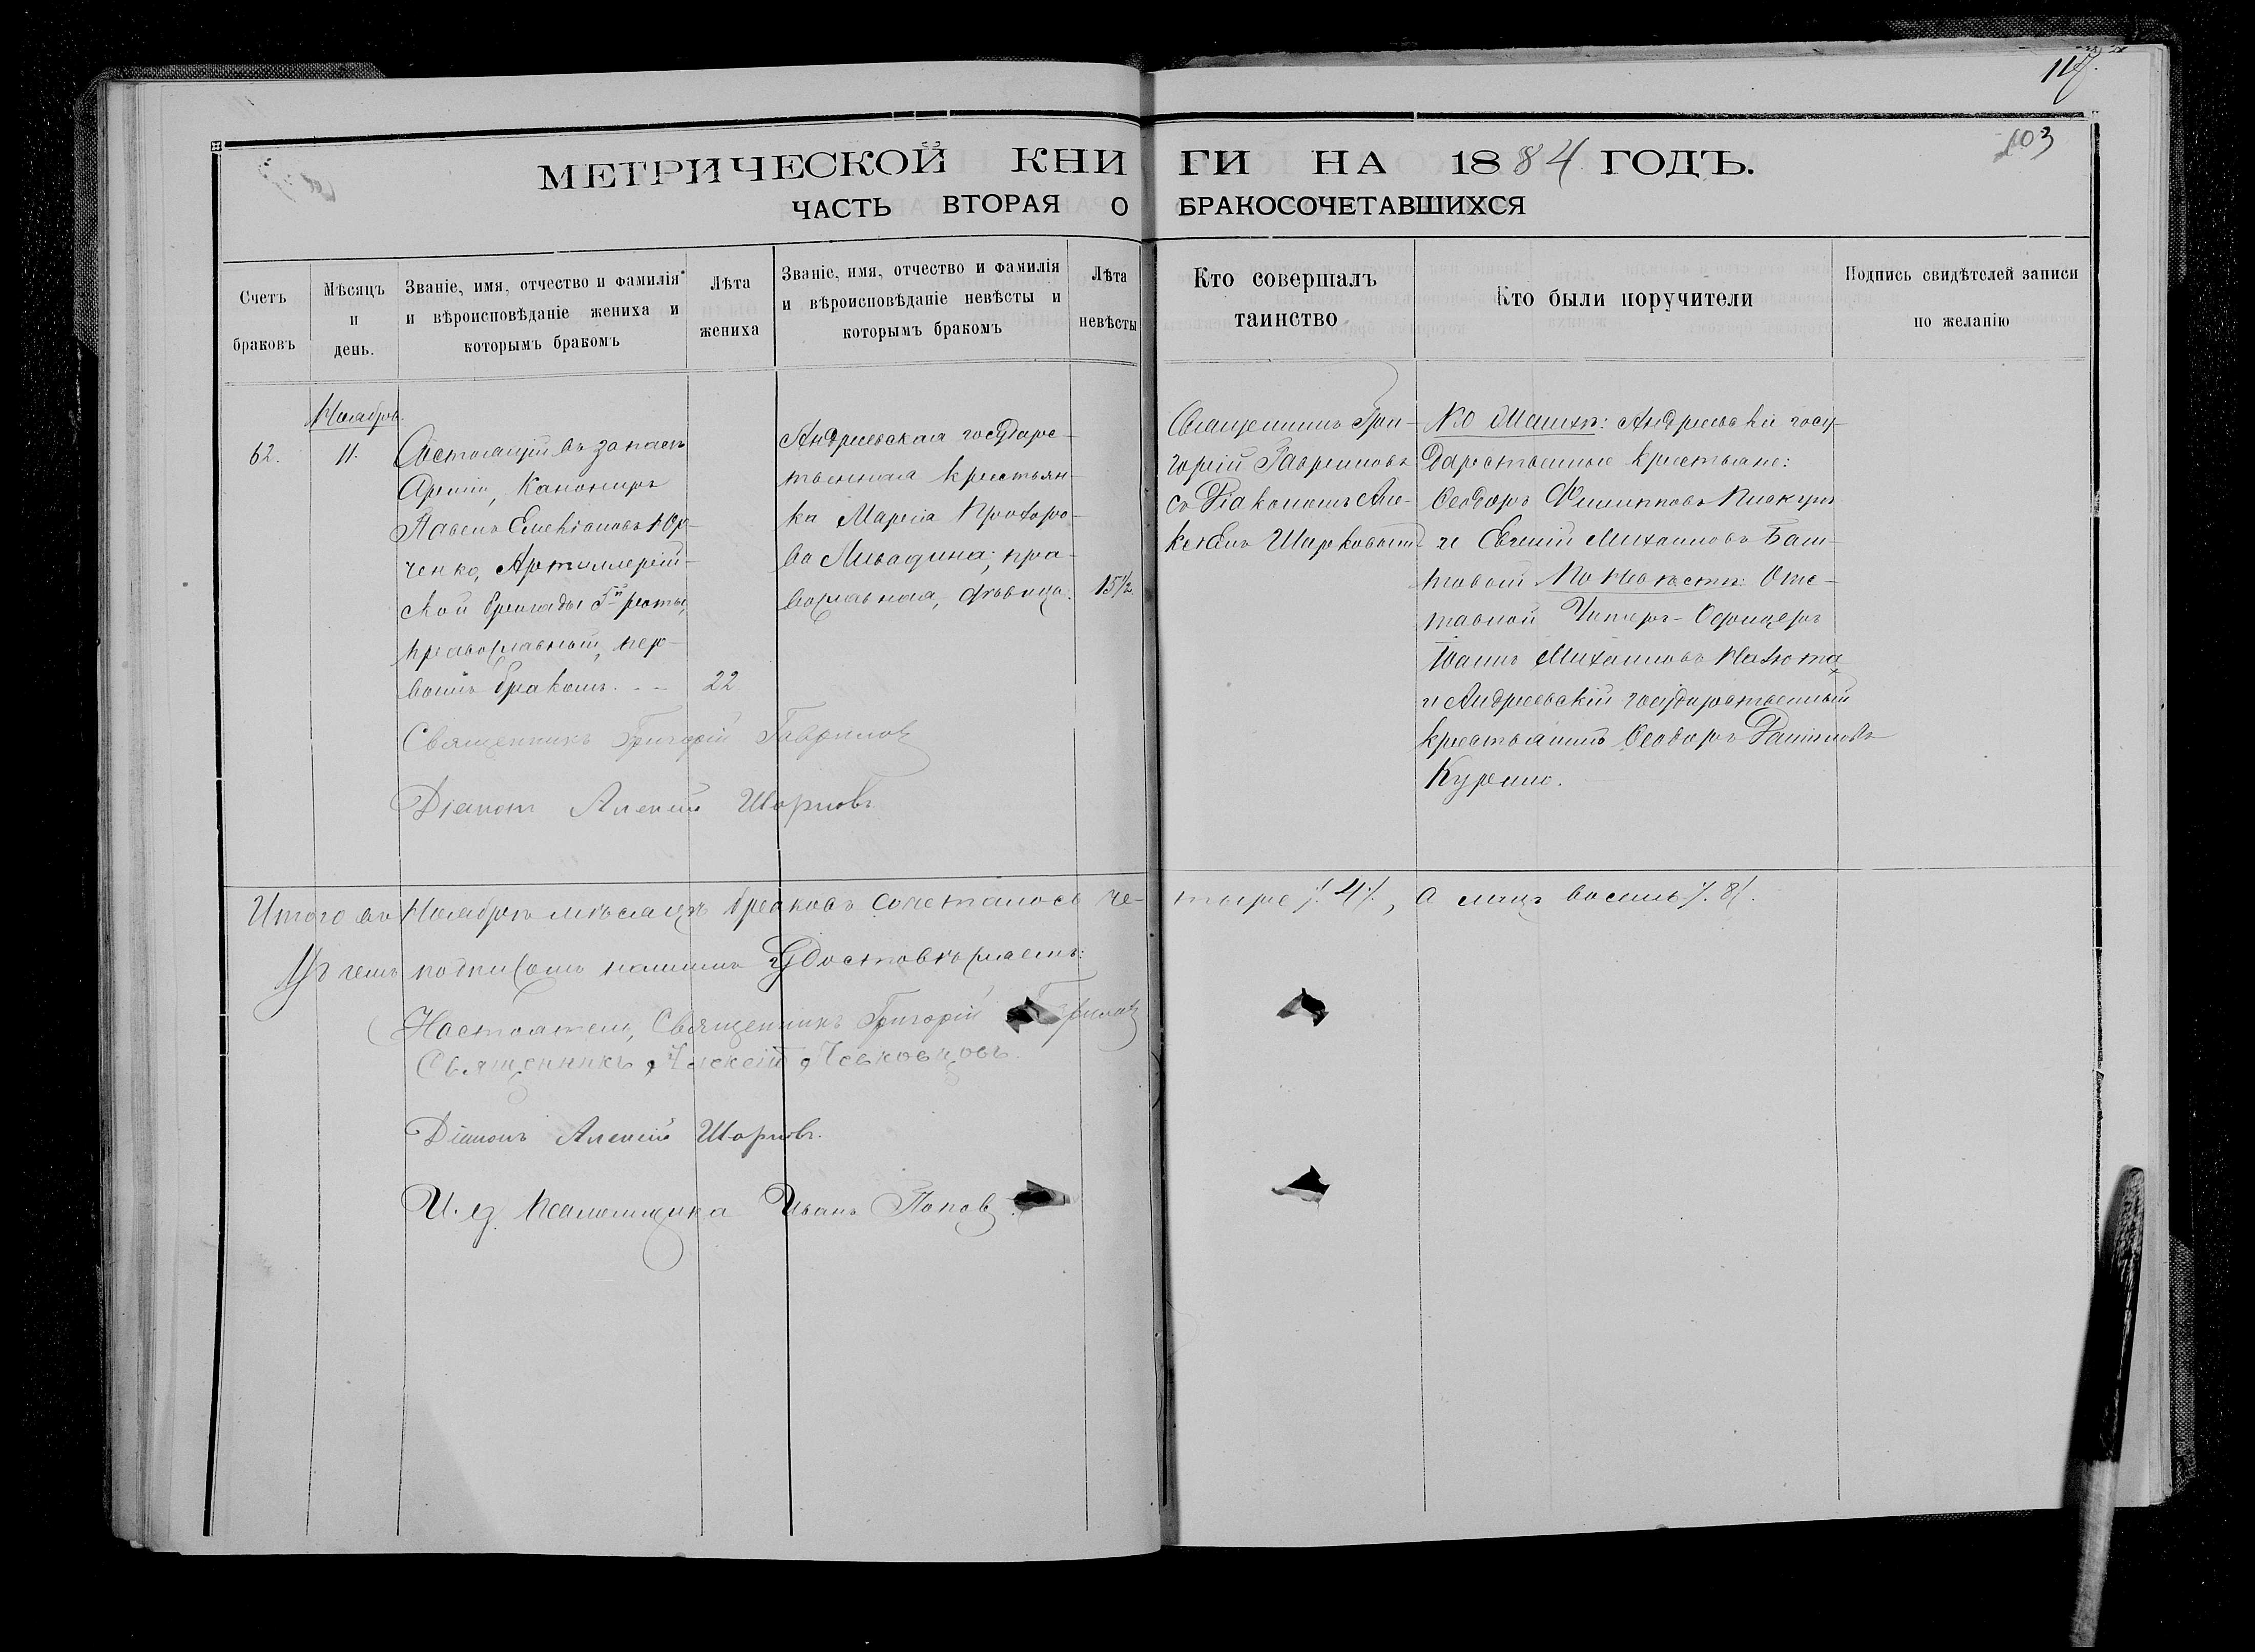 117.
103
МЕТРИЧЕСКОЙ КНИГИ НА 1884 ГОДЪ.
ЧАСТЬ ВТОРАЯ О БРАКОСОЧЕТАВШИХСЯ
Счетъ браковъ
Мѣсяцъ и день.
Званіе, имя, отчество и фамилія и вѣроисповѣданіе жениха и которымъ бракомъ
Лѣта жениха
Званіе, имя, отчество и фамилія и вѣроисповѣданіе невѣсты и которымъ бракомъ
Лѣта невѣсты
Кто совершалъ таинство
Кто были поручители
Подпись свидѣтелей записи по желанію
Ноябрь.
62.
11.
Состоящій въ запасѣ
Арміи, Канониръ
Павелъ Емел⁠iановъ Юр-
ченко, Артиллерій-
ской бригады 5й роты,
православный, пер-
вымъ бракомъ.
22
Андреевская государс-
твенная крестьян-
ка Марѳа Прохоро-
ва Ливадина; пра-
вославная, дѣвица.
15½.
Священникъ Гри-
горій Гавриловъ
съ Діакономъ Але-
ксѣемъ
По Женихѣ: Андреевскіе госу-
дарственные крестьяне:
Ѳеодоръ Филипповъ
и Евгеній Михаиловъ Баш-
товой По Невѣстѣ: Отс-
тавной Унтеръ-Офицеръ
Іоаннъ Михаиловъ
и Андреевскій государственный
крестьянинъ Ѳеодоръ
Священникъ Григорій Гавриловъ
Діаконъ Алексій Шорковъ
Итого въ Ноябрѣ мѣсяцѣ браковъ сочеталось четыре /.4/., а лицъ восемь /.8/.
Въ чемъ подписомъ нашимъ удостовѣряемъ:
Настоятель, Священникъ Григорій
Священникъ Алексій
Діаконъ Алексій Шорковъ.
И. д. Псаломщика Иванъ Поповъ